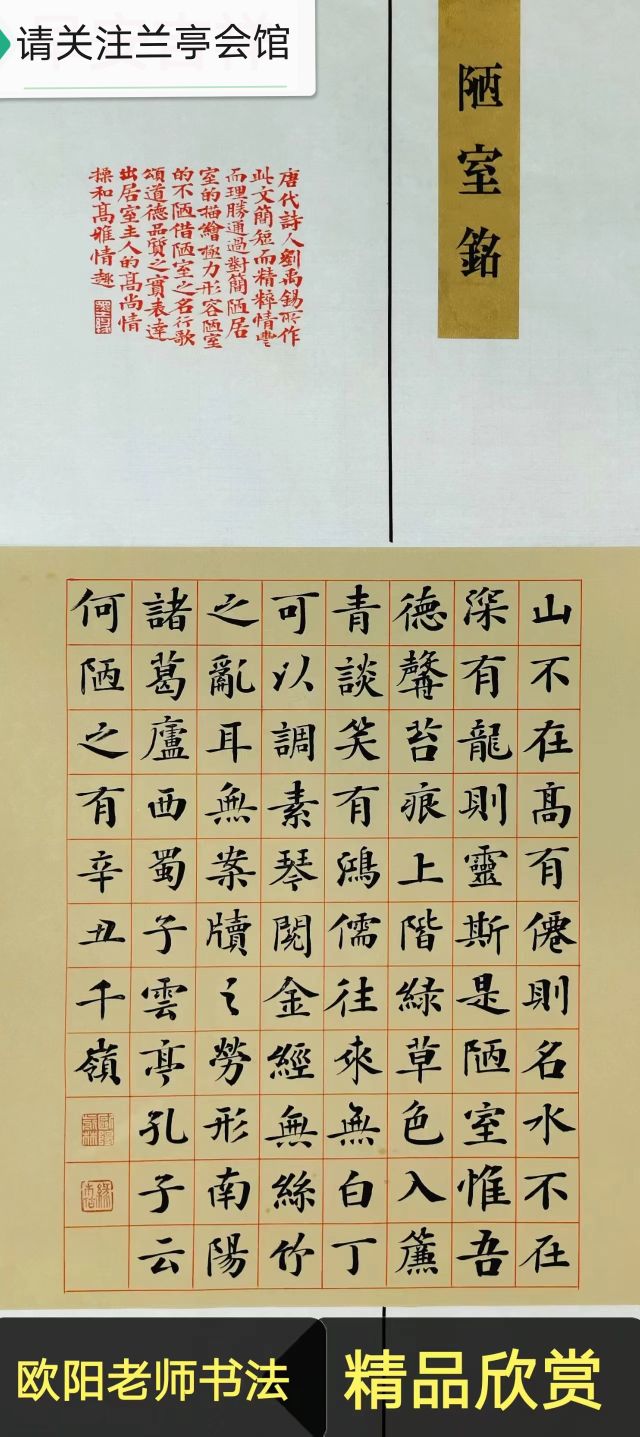 请关注兰亭会馆
陋室銘
唐代詩人劉禹錫所作
此文簡短而精粹情豐
而理勝通過對簡陋居
室的描繪極力形容陋室
的不陋借陋室之名行歌
頌道德品質之實表達
出居室主人的高尚情
操和高雅情趣
山不在高有僊則名水不在
深有龍則靈斯是陋室惟吾
德馨苔痕上階綠草色入簾
青談笑有鴻儒往來無白丁
可以調素琴閱金經無絲竹
之亂耳無案牘之勞形南陽
諸葛廬西蜀子雲亭孔子云
何陋之有辛丑千嶺
欧阳老师书法
精品欣赏